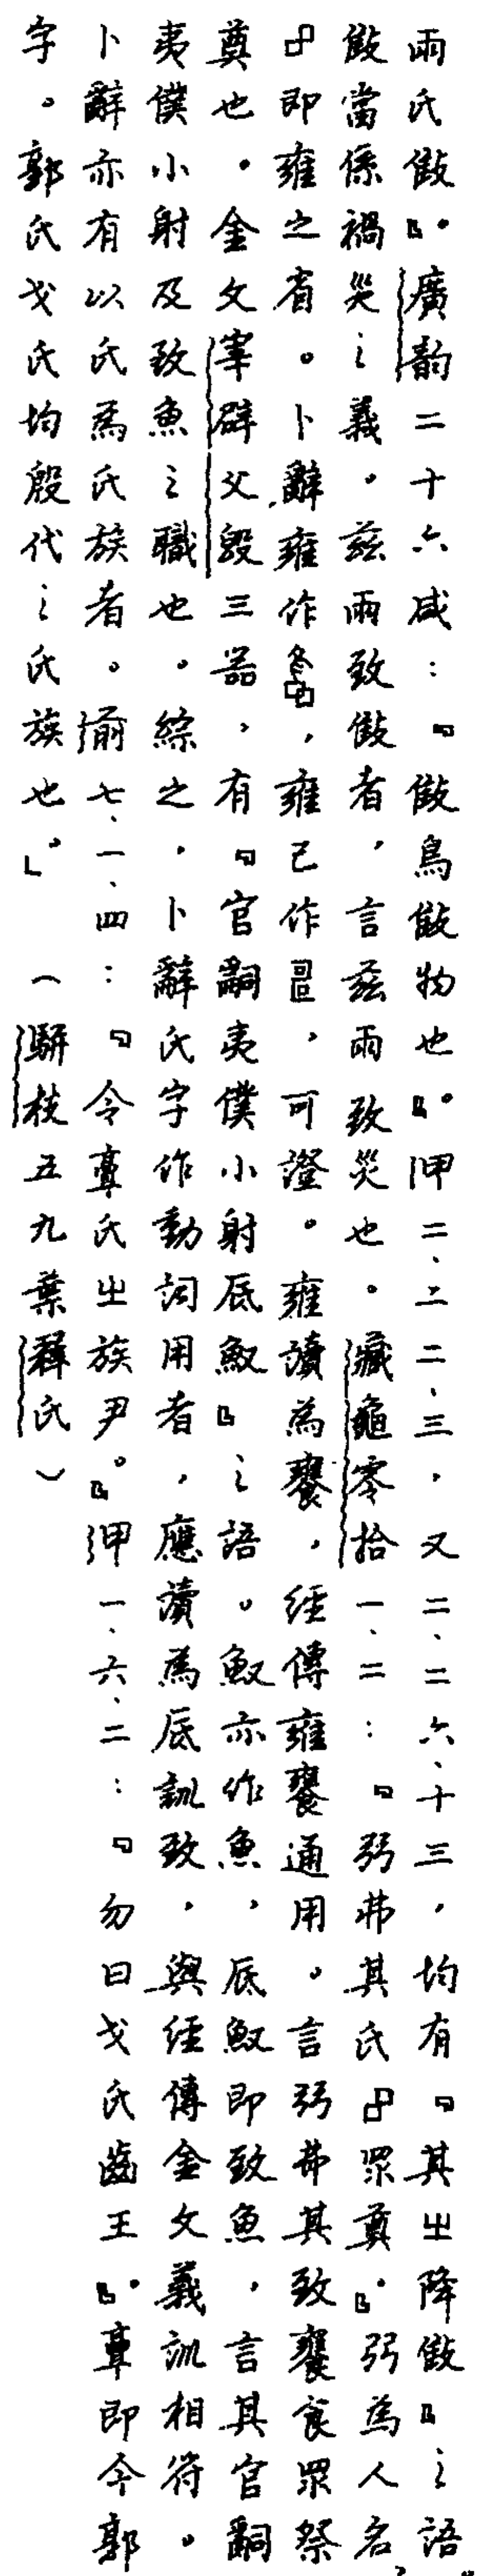 雨氏㪣』。廣韵二十六咸：『㪣鳥㪣物也』。甲二、二二、三，又二、二六、十三，均有『其㞢降㪣』之語
㪣當係禍災之義。茲雨致㪣者，言茲雨致災也。藏龜零拾一、二：『弜弗其氏眔奠』。弜為人名
即雍之省。卜辭雍作，雍己作，可證。雍讀為饔，經傳雍饔通用。言弜弗其致饔食眔祭
奠也。金文宰辟父𣪘三器，有『官嗣夷僕小射厎䱷』之語。䱷亦作魚，厎䱷即致魚，言其官嗣
夷僕小射及致魚之職也。綜之，卜辭氏字作動詞用者，應讀為厎訓致，與經傳金文義訓相符。
卜辭亦有以氏為氏族者。前七、一、四：『令𩫏氏㞢族尹』。甲一、六、二：『勿曰戈氏齒王』。𩫏即今郭
字。郭氏戈氏均殷代之氏族也。」（駢枝五九葉釋氏）